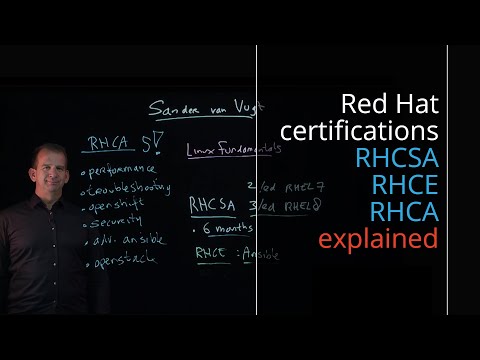 Sander van Vugt
RHCA 5!
• performance
• troubleshooting
• openshift
• security
• adv. ansible
• openstack
Linux Fundamentals
2/ed RHEL 7
RHCSA
3/ed RHEL 8
• 6 months
RHCE : Ansible
Red Hat
certifications
RHCSA
RHCE
RHCA
explained